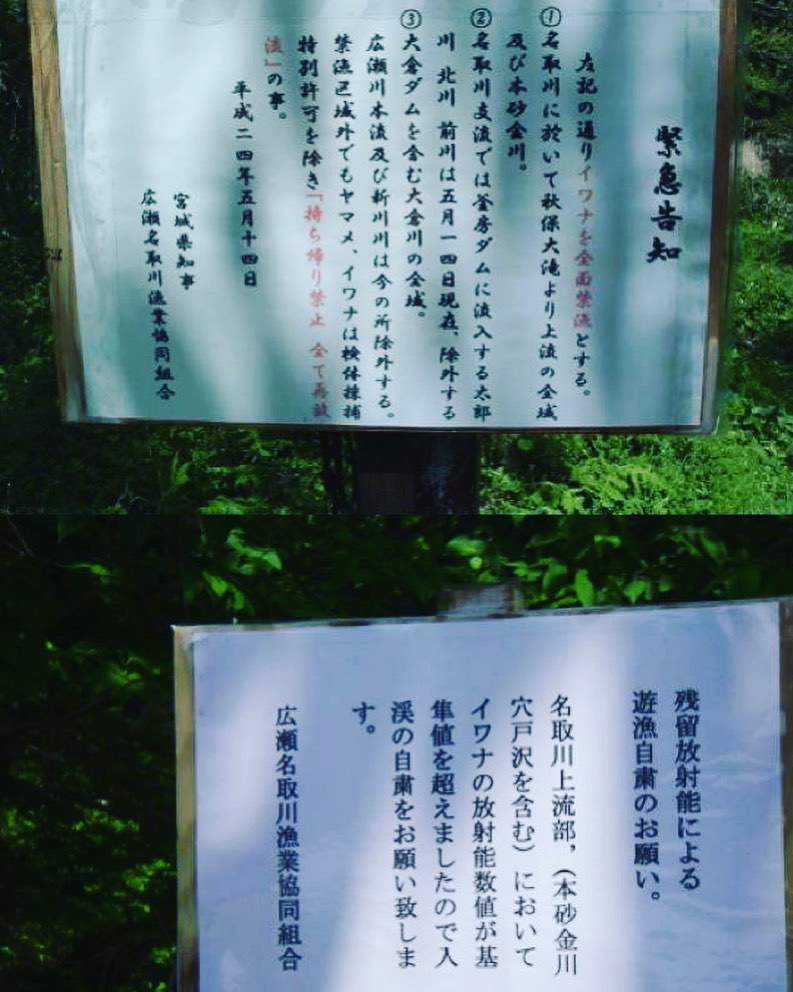 緊急告知
左記の通りイワナを全面禁漁とする。
①名取川に於いて秋保大滝より上流の全域
及び本砂金川。
②名取川支流では釜房ダムに流入する太郎
川 北川 前川は五月一四日現在、除外する
③大倉ダムを含む大倉川の全域。
広瀬川本流及び新川川は今の所除外する。
禁漁区域外でもヤマメ、イワナは検体採捕
特別許可を除き「持ち帰り禁止 全て再放
流」の事。
平成二四年五月十四日
宮城県知事
広瀬名取川漁業協同組合
残留放射能による
遊漁自粛のお願い。
名取川上流部,(本砂金川
穴戸沢を含む)において
イワナの放射能数値が基
隼値を超えましたので入
渓の自粛をお願い致しま
す。
広瀬名取川漁業協同組合